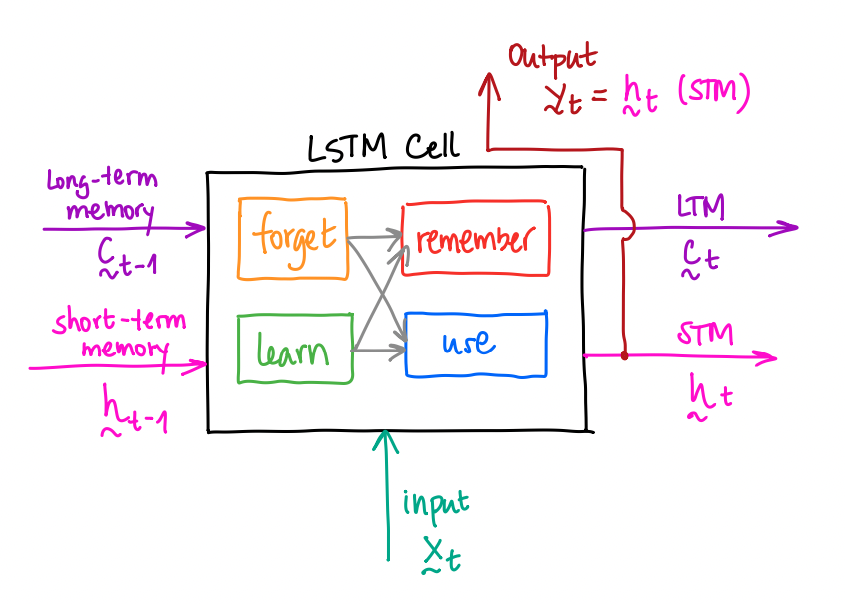 Output
y_t = h_t (STM)
LSTM Cell
long-term
memory
C_t-1
short-term
memory
h_t-1
forget
remember
learn
use
LTM
C_t
STM
h_t
input
x_t